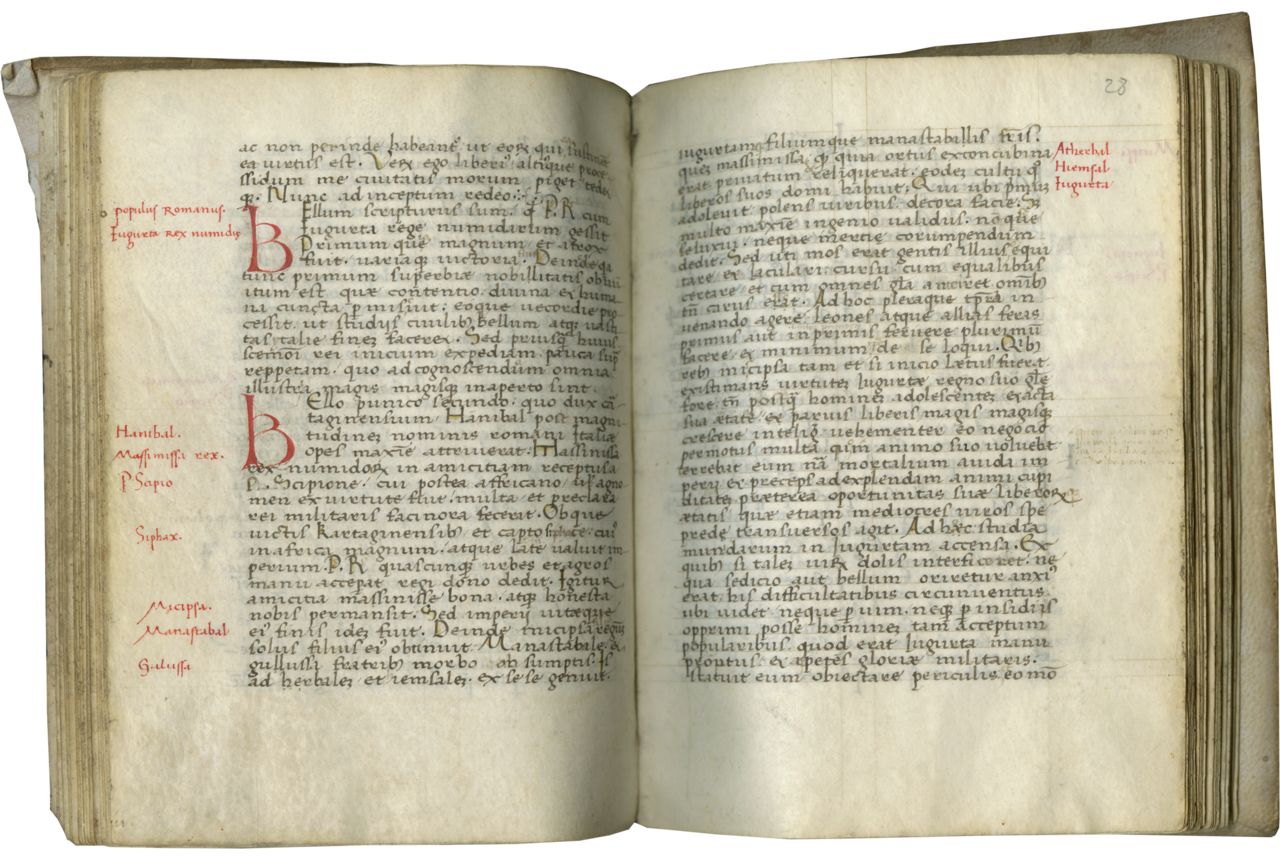 ac non perinde habeant᷒ ut eorꝝ qui sustine
ea virtus est. Verꝫ ego liberiꝰ altiꝰque proce
ssidum me ciuitatis morum piget tedet
qꝫ. Nunc ad inceptum redeo.
populus Romanus.
Iugurta rex numidię
Bellum scripturus sum. qđ P. R cum
Iugurta rege numidarum gessit
Primum que magnum et atrox
fuit. uariaqꝫ uictoria. Deinde qa
tunc primum superbiæ nobillitatis obui
itum est. quæ contentio. diuina et huma
na cuncta ꝑmisiuit. eoque uecordie pro
cessit. ut studijs ciuilibꝫ bellum atqꝫ uasti
tas talie fineꝫ facereꝫ. Sed priusqꝫ huius
scemōi rei inicium expediam. pauca sup̄
reppetam. quo ad cognoscendum omnia
illustra magis magisqꝫ in aperto sint.
Hanibal.
Massimissi rex.
P Scipio
Siphax.
Micipsa.
Manastabal
Gulussa
Bello punico secundo. quo dux cā
taginensium Hanibal post magni
tudineꝫ nominis romani Italiæ
opes maxie᷒ attriuerat. Massinissa
rex numidoꝝ in amicitiam receptus a
P. Scipione. cui postea affricano iis agno
men ex uirtute fuit. multa et preclara
rei militaris facinora fecerat. Ob que
uictis Kartaginensibꝫ et capto siphace. cuiꝰ
in africa magnum. atque late ualuit im
perium. P. R quascunqꝫ urbes et agros
manu acceperat regi dono dedit. Igitur
amicitia massinisse bona. atqꝫ honesta
nobis permansit. Sed imperij uitæque
eiꝰ finis ideꝫ fuit. Deinde micipsa regnū
solus filius eiꝰ obtinuit Manastabile &
gullussi fratribꝫ morbo ab sumptis. Is
ad herbaleꝫ et iemsaleꝫ. ex se se genuit.
28
Atherbal
Hiemsal
Iugurta
iugurtam filiumque manastabillis fr̄is.
queꝫ massinissa qꝫ quia ortus ex concubina
erat priuatum reliquerat. eodeꝫ cultu qͦ
liberos suos domi habuit. Qui ubi primuꝫ
adoleuit polens uiribus. decora facie. Sꝫ
multo maxie᷒ ingenio ualidus. nō que
se luxui. neque inerciæ corumpendum
dedit. Sed uti mos erat gentis illius equi
tare ex iaculari cursu. cum equalibus
certare et cum omnes gła anteiret omibꝫ
tn̄ carus erat. Ad hoc pleraque tp̄ra in
uenando agere. leones atque allias feras
primus aut in primis feruere plurimū
facere. ex minimum de se loqui. Qibꝫ
rebꝫ micipsa tam et si inicio lætus fuerat
existimans uirtuteꝫ Iugurtæ regno suo głe
fore. tn̄ postqꝫ homineꝫ adolescenteꝫ exacta
sua ætate. ex paruis liberis magis magisqꝫ
crescere inteligꝫ uehementer eo negocio
permotus multa qum animo suo uoluebt
terrebat eum nā mortalium auida im
perij ex preceps ad explendam animi cupi
ditateꝫ præterea oportunitas suæ liberoꝝ
ætatis. quæ etiam mediocres uiros spe
prede transuersos agit. Ad hæc studia
mundarum in Iugurtam accensa. Ex
quibꝫ si taleꝫ uirꝫ dolis interficeret. ne
qua sedicio aut bellum oriretur anxiꝰ
erat. his difficultatibus circunuentus
ubi uidet neque ꝑ uim. neqꝫ ꝑ insidiis
opprimi posse homineꝫ tam acceptum
popularibus. quod erat Iugurta manu
promtus. ex apeteꝫ gloriæ militaris.
statuit eum obiectare periculis. eo mō